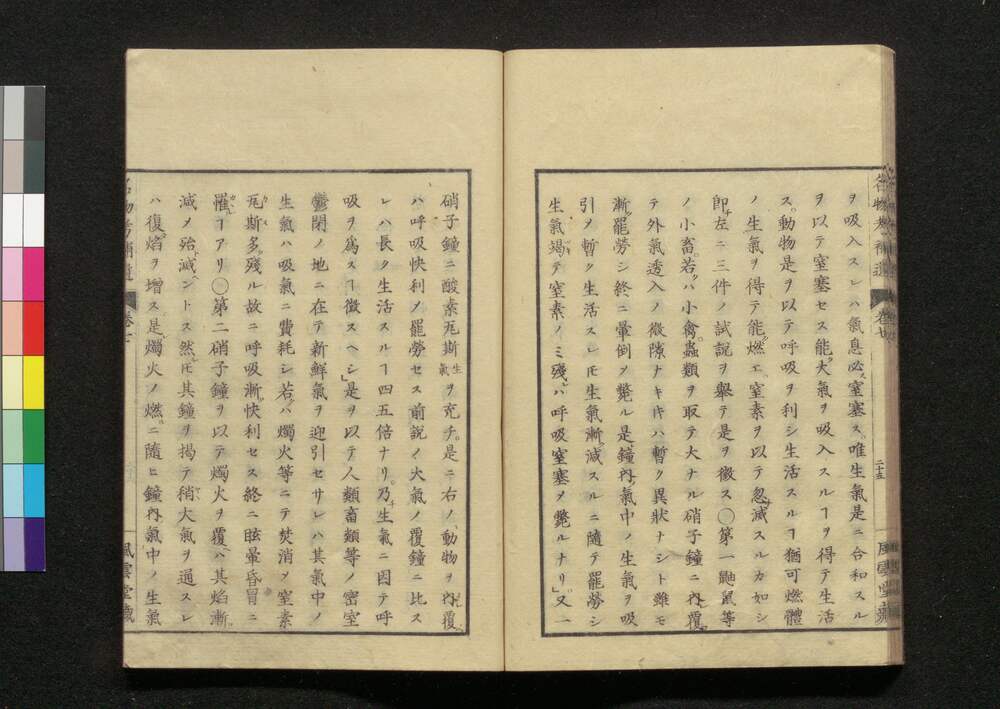 ヲ吸入スレハ氣息必窒塞ス唯生氣是ニ合和スル
ヲ以テ窒塞セス能大氣ヲ吸入スルヿヲ得テ生活
ス動物是ヲ以テ呼吸ヲ利シ生活スルヿ猶可燃體
ノ生氣ヲ得テ能燃エ窒素ヲ以テ忽滅スルカ如シ
即左ニ二三件ノ試説ヲ舉テ是ヲ徴ス〇第一鼬鼠等
ノ小畜若ハ小禽蟲類ヲ取テ大ナル硝子鐘ニ内覆
テ外氣透入ノ微隙ナキキハ暫ク異狀ナシト雖モ
漸罷勞シ終ニ暈倒ノ斃ル是鐘内氣中ノ生氣ヲ吸
引メ暫ク生活スレ𪜈生氣漸減スルニ隨テ罷勞シ
生氣竭テ窒素ノミ殘ハ呼吸窒塞メ斃ルナリ」又一
硝子鐘ニ酸素瓦斯生氣ヲ充チ是ニ右ノ動物ヲ内覆
ハ呼吸快利メ罷勞セス前説ノ大氣ノ覆鐘ニ比ス
レハ長ク生活スルヿ四五倍ナリ乃生氣ニ因テ呼
吸ヲ爲スヿ徴スヘシ」是ヲ以テ人類畜類等ノ密室
鬱閉ノ地ニ在テ新鮮氣ヲ迎引セサレハ其氣中ノ
生氣ハ吸氣ニ費耗シ若ハ燭火等ニテ焚消メ窒素
瓦斯多殘ル故ニ呼吸漸快利セス終ニ眩暈昏冒ニ
罹ヿアリ〇第二硝子鐘ヲ以テ燭火ヲ覆ハ其焰漸
減メ殆滅ントス然𪜈其鐘ヲ揭テ稍大氣ヲ通スレ
ハ復焰ヲ增ス是燭火ノ燃ニ隨ヒ鐘内氣中ノ生氣
二十五
風雲堂藏